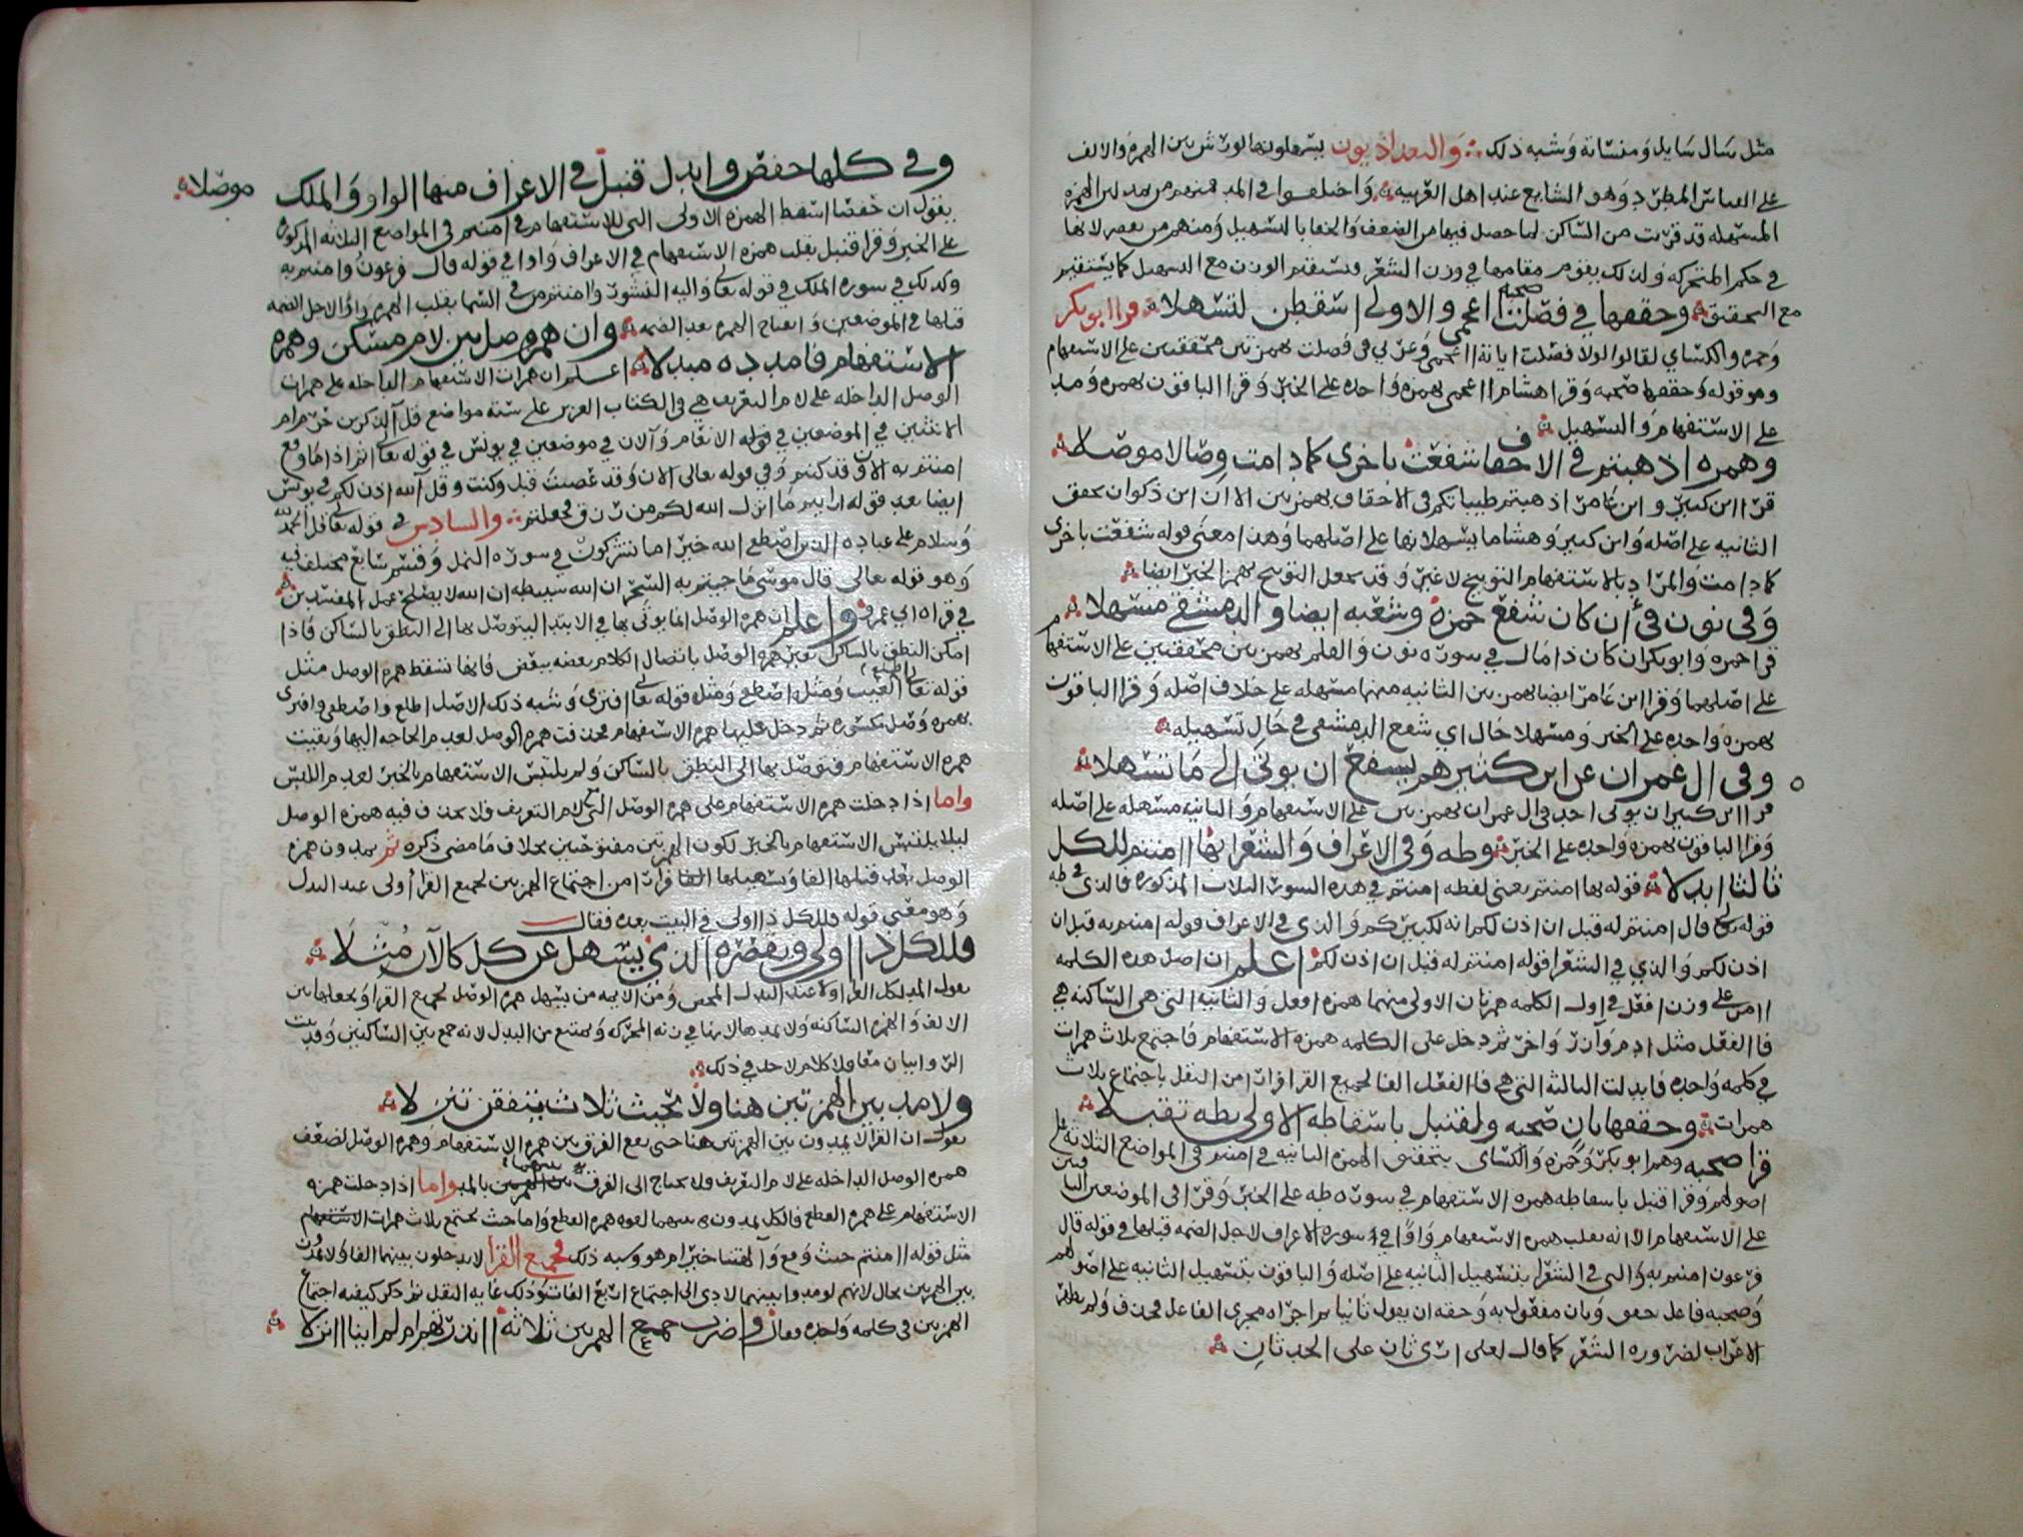 مثل سال سايل ومنساته وشبه ذلك والبغداذيون يسهلونها لورش بين الهمزة والالف
على القياس المطرد وهو الشايع عند اهل العربيه واختلفوا في المد فمنهم من يمد لان الهمزة
المسهله قد قربت من الساكن لما حصل فيها من الضعف والخفا بالتسهيل ومنهم من يقصر لانها
في حكم المتحركه ولذلك يقوم مقامها في وزن الشعر ويستقيم الوزن مع التسهيل كما يستقيم
مع التحقيق وحققها في فصلت صحبة ااعجمي والاولى اسقطن لتسهلا قرا ابو بكر
وحمزه والكساي لقالوا لولا فصلت اياته ااعجمي وعربي في فصلت بهمزتين محققتين على الاستفهام
وهو قوله وحققها صحبه وقرا هشام ااعجمي بهمزه واحده على الخبر وقرا الباقون بهمزه ومد
على الاستفهام والتسهيل
وهمزه اذهبتم في الاحقاف شفعت باخرى كما دامت وصالا موصلا
قرا ابن كثير وابن عامر اذهبتم طيباتكم في الاحقاف بهمزتين الا ان ابن ذكوان يحقق
الثانيه على اصله وابن كثير وهشاما يسهلانها على اصلهما وهذا معنى قوله شفعت باخرى
كما دامت والمراد بالاستفهام التوبيخ لا غير وقد يحصل التوبيخ بهمز الخبر ايضا
وفي نون في أن كان شفع حمزة وشعبه ايضا والدمشقي مسهلا
قرا حمزه وابو بكر ان كان ذا مال في سورة نون والقلم بهمزتين محققتين على الاستفهام
على اصلهما وقرا ابن عامر ايضا بهمزتين الثانيه منهما مسهله على خلاف اصله وقرا الباقون
بهمزه واحده على الخبر ومسهلا حال اي شفع الدمشقي في حال تسهيله
وفي ال عمران عن ابن كثيرهم يشفع ان يوتى الى ما تسهلا
قرا ابن كثير ان يوتى احد في ال عمران بهمزتين على الاستفهام والثانيه مسهله على اصله
وقرا الباقون بهمزه واحده على الخبر وطه وفي الاعراف والشعرا بها اامنتم للكل
ثالثا ابدلا قوله بها امنتم يعني لفظه امنتم في هذه السور الثلاث المذكوره فالذي في طه
قوله تعالى قال امنتم له قبل ان اذن لكم انه لكبيركم والذي في الاعراف قوله امنتم به قبل ان
اذن لكم والذي في الشعرا قوله امنتم له قبل ان اذن لكم اعلم ان اصل هذه الكلمه
اامن على وزن افعل في اول الكلمه همزتان الاولى منهما همزه افعل والثانيه التي هي الساكنه هي
فا الفعل مثل ادم وآزر واخر ثم دخل على الكلمه همزه الاستفهام فاجتمع ثلاث همزات
في كلمه واحده فابدلت الثالثه التي هي فا الفعل الفا لجميع القرا فرارا من النقل باجتماع ثلاث
همزات وحققها ثان صحبه ولقنبل باسقاطه الاولى بطه تقبلا
قرا صحبه وهم ابو بكر وحمزه والكساى بتحقيق الهمزه الثانيه في امنتم في المواضع الثلاثه على
اصولهم وقرا قنبل باسقاطه همزه الاستفهام في سوره طه على الخبر وقرا في الموضعين الباقيين
على الاستفهام الا انه يقلب همزه الاستفهام واوا في سوره الاعراف لاجل الضمه قبلها في قوله قال
فرعون امنتم به والتى في الشعرا بتسهيل الثانيه على اصله والباقون بتسهيل الثانيه على اصولهم
وصحبه فاعل حقق وثان مفعول به وحقه ان يقول ثانيا اجراه مجرى الفاعل فحذف ولم يظهر
الاعراب لضروره الشعر كما قال لعلى ارى ثان على الحدثان
وفي كلها حفص وابدل قنبل في الاعراف منها الواو والملك موصلا
يقول ان حفصا اسقط الهمزه الاولى التى للاستفهام في امنتم في المواضع الثلاثه المذكورة
على الخبر وقرا قنبل بقلب همزه الاستفهام في الاعراف واوا في قوله قال فرعون وامنتم به
وكذلك في سوره الملك في قوله تعالى واليه النشور وامنتم من في السما بقلب الهمزه واوا لاجل الضمه
قبلها في الموضعين وانفتاح الهمزه بعد الضمه وان همز وصل بين لام مسكن وهمزة
الاستفهام فامدده مبدلا اعلم ان همزات الاستفهام الداخله على همزات
الوصل الداخله على لام التعريف هي في الكتاب العزيز على سته مواضع قل آلذكرين حرم ام
الانثيين في الموضعين في قوله الانعام وآلان في موضعين في يونس في قوله تعالى اثم اذا ما وقع
امنتم به الان وقد كنتم وفي قوله تعالى الان وقد عصيت قبل وكنت وقل آلله اذن لكم في يونس
ايضا بعد قوله ارايتم ما انزل الله لكم من رزق فجعلتم والسادس في قوله تعالى قل الحمد لله
وسلام على عباده الذين اصطفى الله خير اما تشركون في سوره النمل وقسم سابع مختلف فيه
وهو قوله تعالى قال موسى ما جيتم به السحر ان الله سيبطله ان الله لا يصلح عمل المفسدين
في قراة ابي عمرو واعلم ان همزه الوصل انما يوتى بها في الابتدا ليتوصل بها الى النطق بالساكن فاذا
امكن النطق بالساكن بغير همزه الوصل باتصال الكلام بعضه ببعض فانها تسقط همزه الوصل مثل
قوله تعالى اطلع الغيب ومثله اصطفى ومثله قوله تعالى افترى وشبه ذلك الاصل اطلع واصطفى وافترى
بهمزه وصل مكسوره ثم دخل عليها همزه الاستفهام فحذفت همزه الوصل لعدم الحاجه اليها وبقيت
همزه الاستفهام فتوصل بها الى النطق بالساكن ولم يلتبس الاستفهام بالخبر لعدم اللبس
واما اذا دخلت همزه الاستفهام على همزه الوصل التي مع لام التعريف فلا يحذف فيه همزه الوصل
ليلا يلتبس الاستفهام بالخبر لكون الهمزتين مفتوحتين بخلاف ما مضى ذكره ثم يمدون همزه
الوصل بقلبها الفا وتسهيلها فرارا من اجتماع الهمزتين لجميع القرا أولى عند البدل
وهو معنى قوله فللكل ذا اولى في البيت بعده فقال
فللكل ذا اولى ويقصره الذي يسهل عن كل كالآن مثلا
يقول المد لكل القرا اولا عند البدل المحض ومن الايمه من يسهل همزه الوصل لجميع القرا ويجعلها بين
الالف والهمزه الساكنه ولا يمدها لانها في زنه المتحركه ويمتنع من البدل لانه جمع بين الساكنين وقد ثبت
الروايتان معا ولا كلام لاحد في ذلك
ولا مد بين الهمزتين هنا ولا بحيث ثلاث يتفقن تنزلا
يقول ان القرا لا يمدون بين الهمزتين هنا حتى يقع الفرق بين همزه الاستفهام وهمزه الوصل لضعف
همزه الوصل الداخله على لام التعريف ولا يحتاج الى الفرق بينهما بالمد واما اذا دخلت همزه
الاستفهام على همزه القطع فالكل يمدون بينهما لقوه همزه القطع واما حيث تجتمع ثلاث همزات
مثل قوله اامنتم حيث وقع وآلهتنا خير ام هو وشبه ذلك فجميع القرا لا يدخلون بينهما الفا ولا يمدون
بين الهمزتين بحال لانهم لو مدوا بينهما لادى الى اجتماع اربع الفات وذلك غايه الثقل ثم ذكر كيفيه اجتماع
الهمزتين في كلمه واحده فقال واضرب جمع الهمزتين ثلاثة اانذرتهم ام لم اينا اانزلا